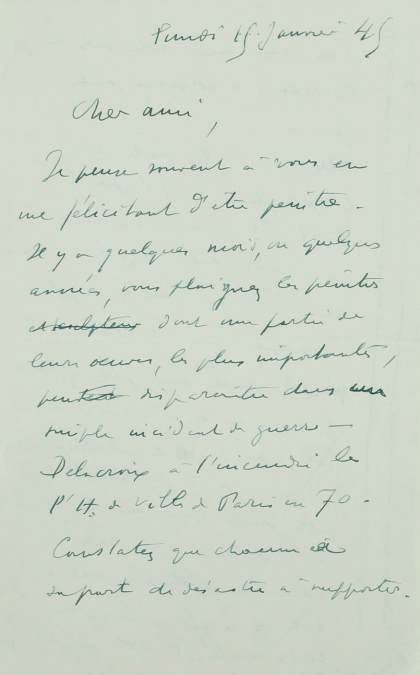 Lundi 15 Janvier 45
Cher ami,
Je pense souvent à vous en
me félicitant d'etre peintre -
Il y a quelques mois, ou quelques
années, vous plaignez les peintres
et sculpteurs dont une partie de
leurs oeuvres, les plus importantes,
disparaitre dans un
simple incident de guerre -
Delacroix à l'incendie de
l'H. de Ville de Paris en 70 -
Constatez que chacun a
sa part de désastre à supporter.